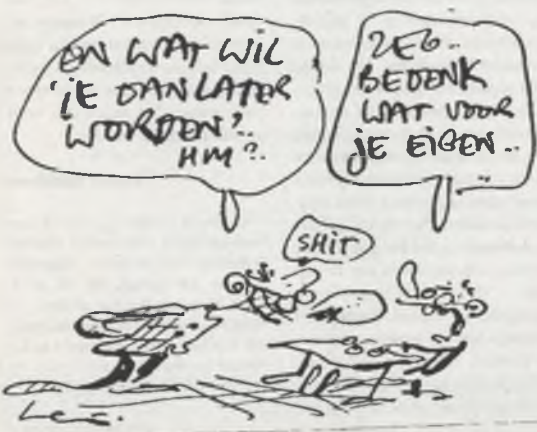 EN WAT WIL
JE DAN LATER
WORDEN?..
HM?..
ZEG..
BEDENK
WAT VOOR
JE EIGEN..
SHIT